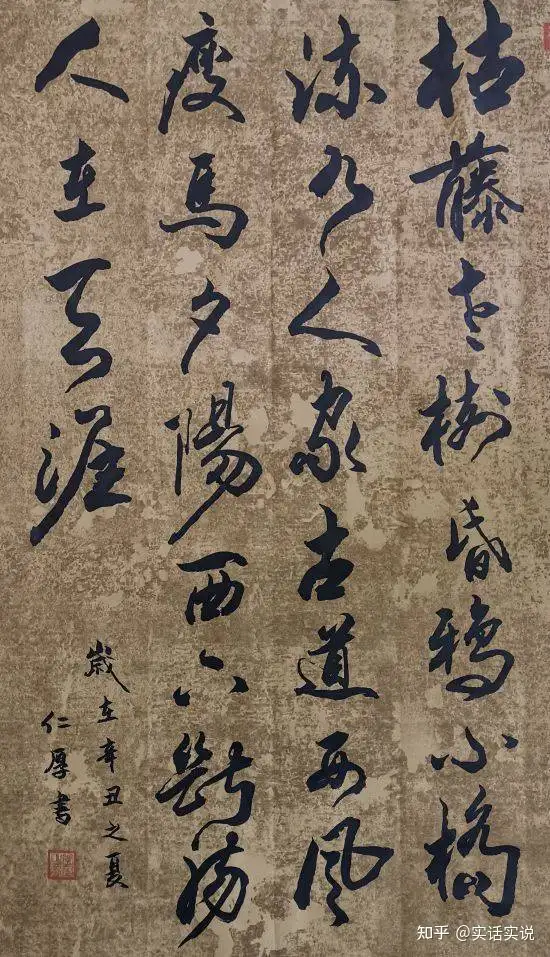 枯藤老树昏鸦小橋
流水人家古道西风
瘦馬夕陽西下斷肠
人在天涯
歲在辛丑之夏
仁厚書
知乎 @实话实说